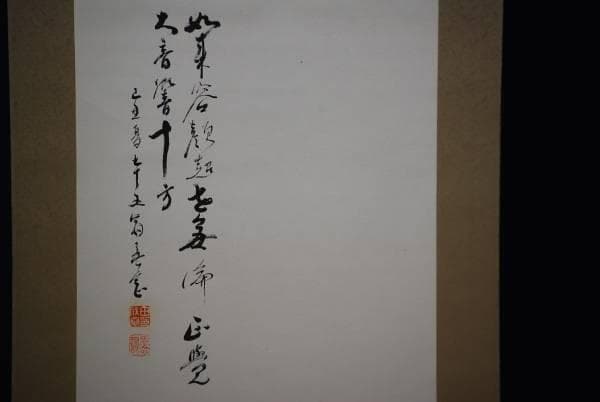 如来容顔超世無倫正覺
大音響十方
己丑夏七十五翁